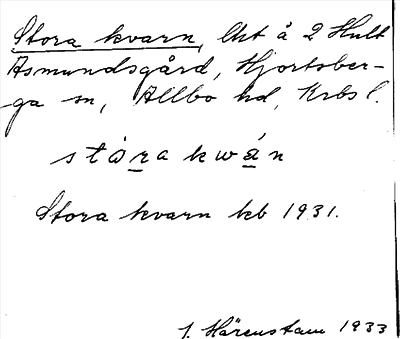 Stora kvarn, lht å 2 Hult
Asmundsgård, Hjortsber-
ga sn, Allbo hd, Krbs l.
stòra kwán
Stora kvarn kb 1931.
J. Härenstam 1933